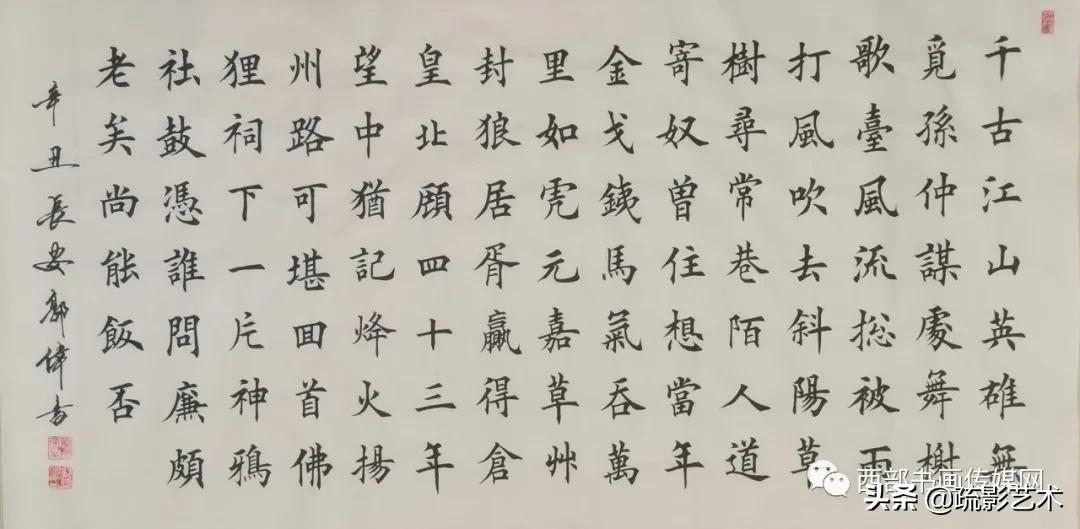 千古江山英雄無
覓孫仲謀處舞榭
歌臺風流總被雨
打風吹去斜陽草
樹尋常巷陌人道
寄奴曾住想當年
金戈鐵馬氣吞萬
里如虎元嘉草艸
封狼居胥贏得倉
皇北顧四十三年
望中猶記烽火揚
州路可堪回首佛
狸祠下一片神鴉
社鼓憑誰問廉頗
老矣尚能飯否
辛丑長安郭偉書
西部书画传媒网
头条 @疏影艺术